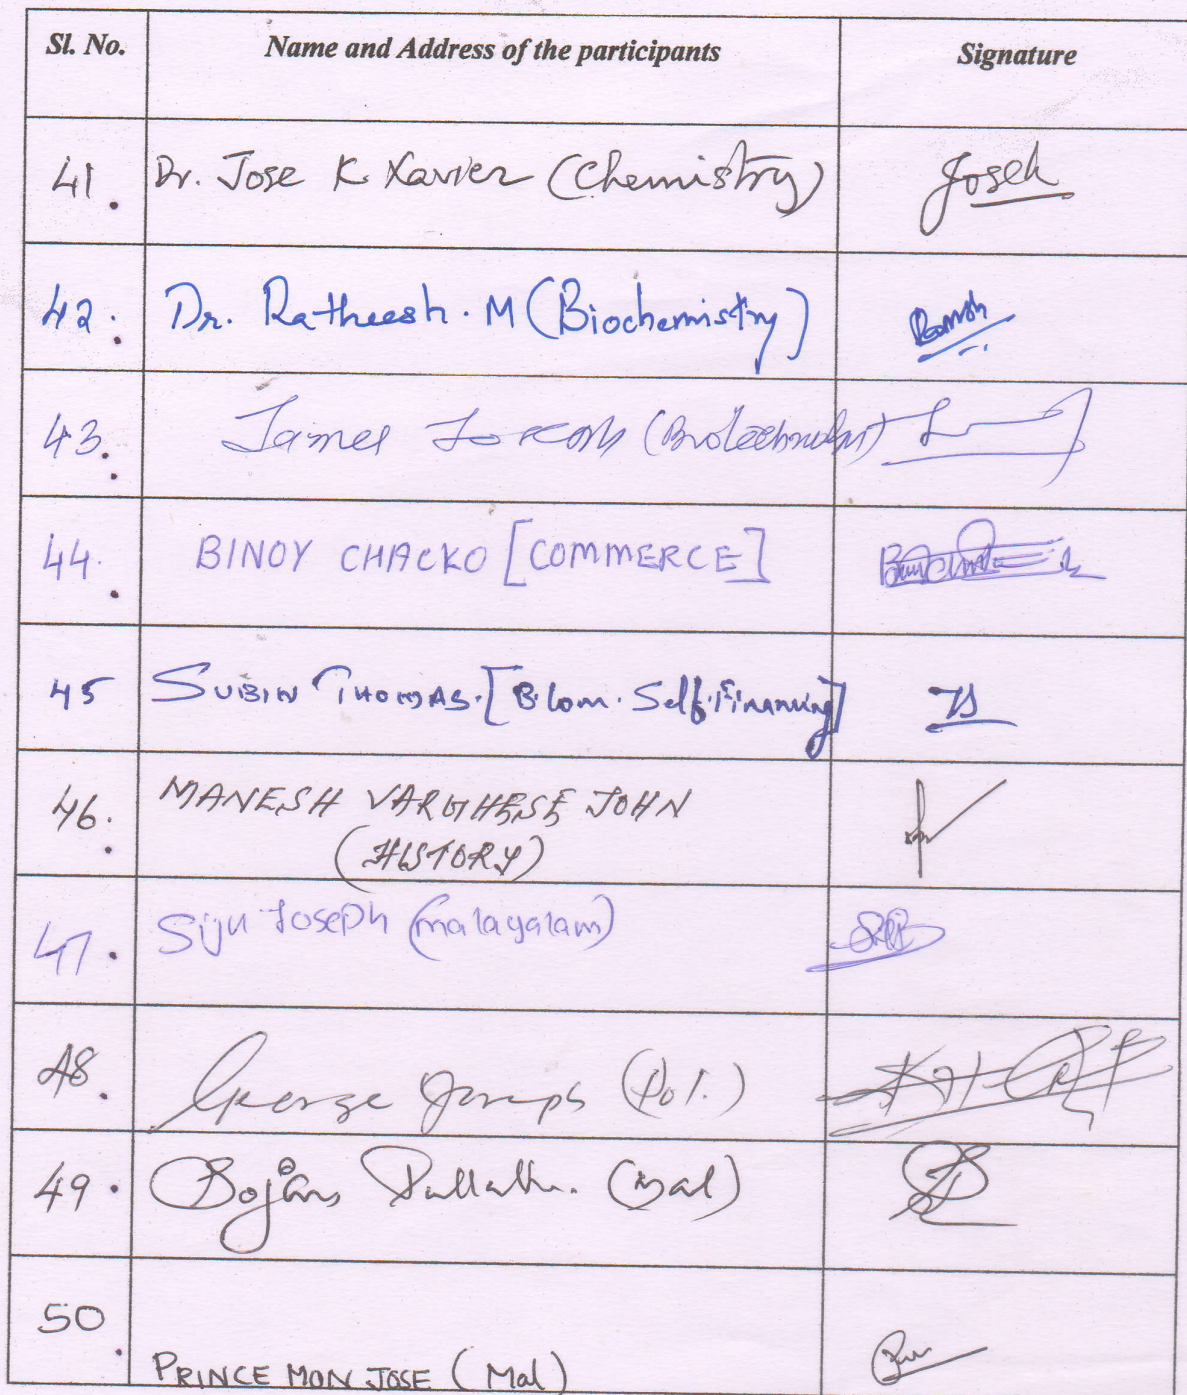 Sl. No. Name and Address of the participants Signature
41. Dr. Jose K Xavier (Chemistry) Josek
42. Dr. Ratheesh. M (Biochemistry)
43. James (Biotechnology)
44. BINOY CHACKO [COMMERCE]
45 SUBIN THOMAS. [B.Com. Self.Financing]
46. MANESH VARGHESE JOHN
(HISTORY)
47. Siju Joseph (malayalam)
48. George Joseph (Pol.)
49. (Mal)
50. PRINCE MON JOSE (Mal)